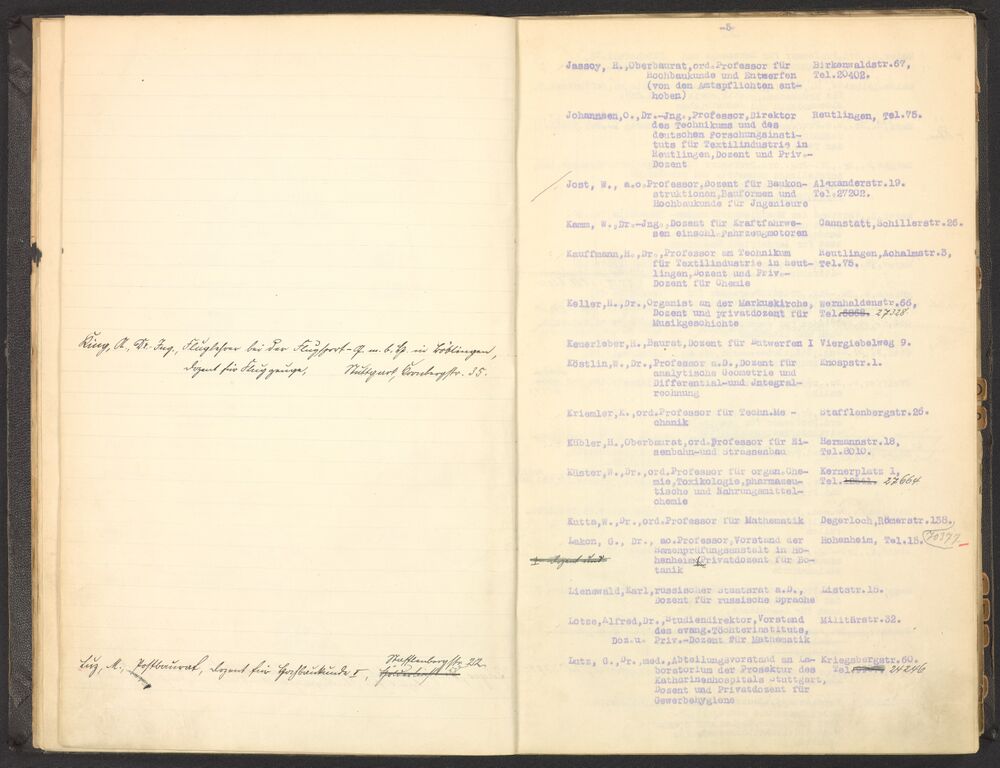 Dr. Ing., Fluglehrer bei der Flugsport-G.m.b.H. in Böblingen,
Dozent für Flugzeuge, Stuttgart, Cronbergstr. 35.
Stafflenbergstr. 22
Lutz, A., Postbaurat, Dozent für Hochbaukunde I,
-5-
Jassoy, H.,Oberbaurat,ord.Professor für Birkenwaldstr.67,
Hochbaukunde und Entwerfen Tel.20402.
(von den Amtspflichten ent-
hoben)
Johannsen,O.,Dr.-Jng.,Professor,Direktor Reutlingen, Tel.75.
des Technikums und des
deutschen Forschungsinsti-
tuts für Textilindustrie in
Reutlingen,Dozent und Priv.-
Dozent
Jost, W., a.o.Professor,Dozent für Baukon- Alexanderstr.19.
struktionen,Bauformen und Tel.27202.
Hochbaukunde für Jngenieure
Kamm, W.,Dr.-Jng.,Dozent für Kraftfahrwe- Cannstatt,Schillerstr.26.
sen einschl.Fahrzeugmotoren
Kauffmann,H.,Dr.,Professor am Technikum Reutlingen,Achalmstr.3,
für Textilindustrie in Reut- Tel.75.
lingen,Dozent und Priv.-
Dozent für Chemie
Keller,H.,Dr.,Organist an der Markuskirche, Wernhaldenstr.66,
Dozent und Privatdozent für Tel. 27328
Musikgeschichte
Keuerleber,H.,Baurat,Dozent für Entwerfen I Viergiebelweg 9.
Köstlin,E.,Dr.,Professor a.D.,Dozent für Knospstr.1.
analytische Geometrie und
Differential-und Jntegral-
rechnung
Kriemler,K.,ord.Professor für Techn.Me - Stafflenbergstr.26.
chanik
Kübler,H.,Oberbaurat,ord.Professor für Ei- Hermannstr.18,
senbahn-und Strassenbau Tel.8010.
Küster,W.,Dr.,ord.Professor für organ.Che- Kernerplatz 1,
mie,Toxikologie,pharmazeu- Tel. 27664
tische und Nahrungsmittel-
chemie
Kutta,W.,Dr.,ord.Professor für Mathematik Degerloch,Römerstr.138.
Lakon, G., Dr., ao.Professor,Vorstand der Hohenheim, Tel.18. 70377
Samenprüfungsanstalt in Ho-
Dozent und henheim,Privatdozent für Bo-
tanik
Lienewald,Karl,russischer Staatsrat a.D., Liststr.15.
Dozent für russische Sprache
Lotze,Alfred,Dr.,Studiendirektor,Vorstand Militärstr.32.
des evang.Töchterinstituts,
Doz.u. Priv.-Dozent für Mathematik
Lutz, G.,Dr.,med.,Abteilungsvorstand am La- Kriegsbergstr.60.
boratorium der Prosektur des Tel. 24246
Katharinenhospitals Stuttgart,
Dozent und Privatdozent für
Gewerbehygiene